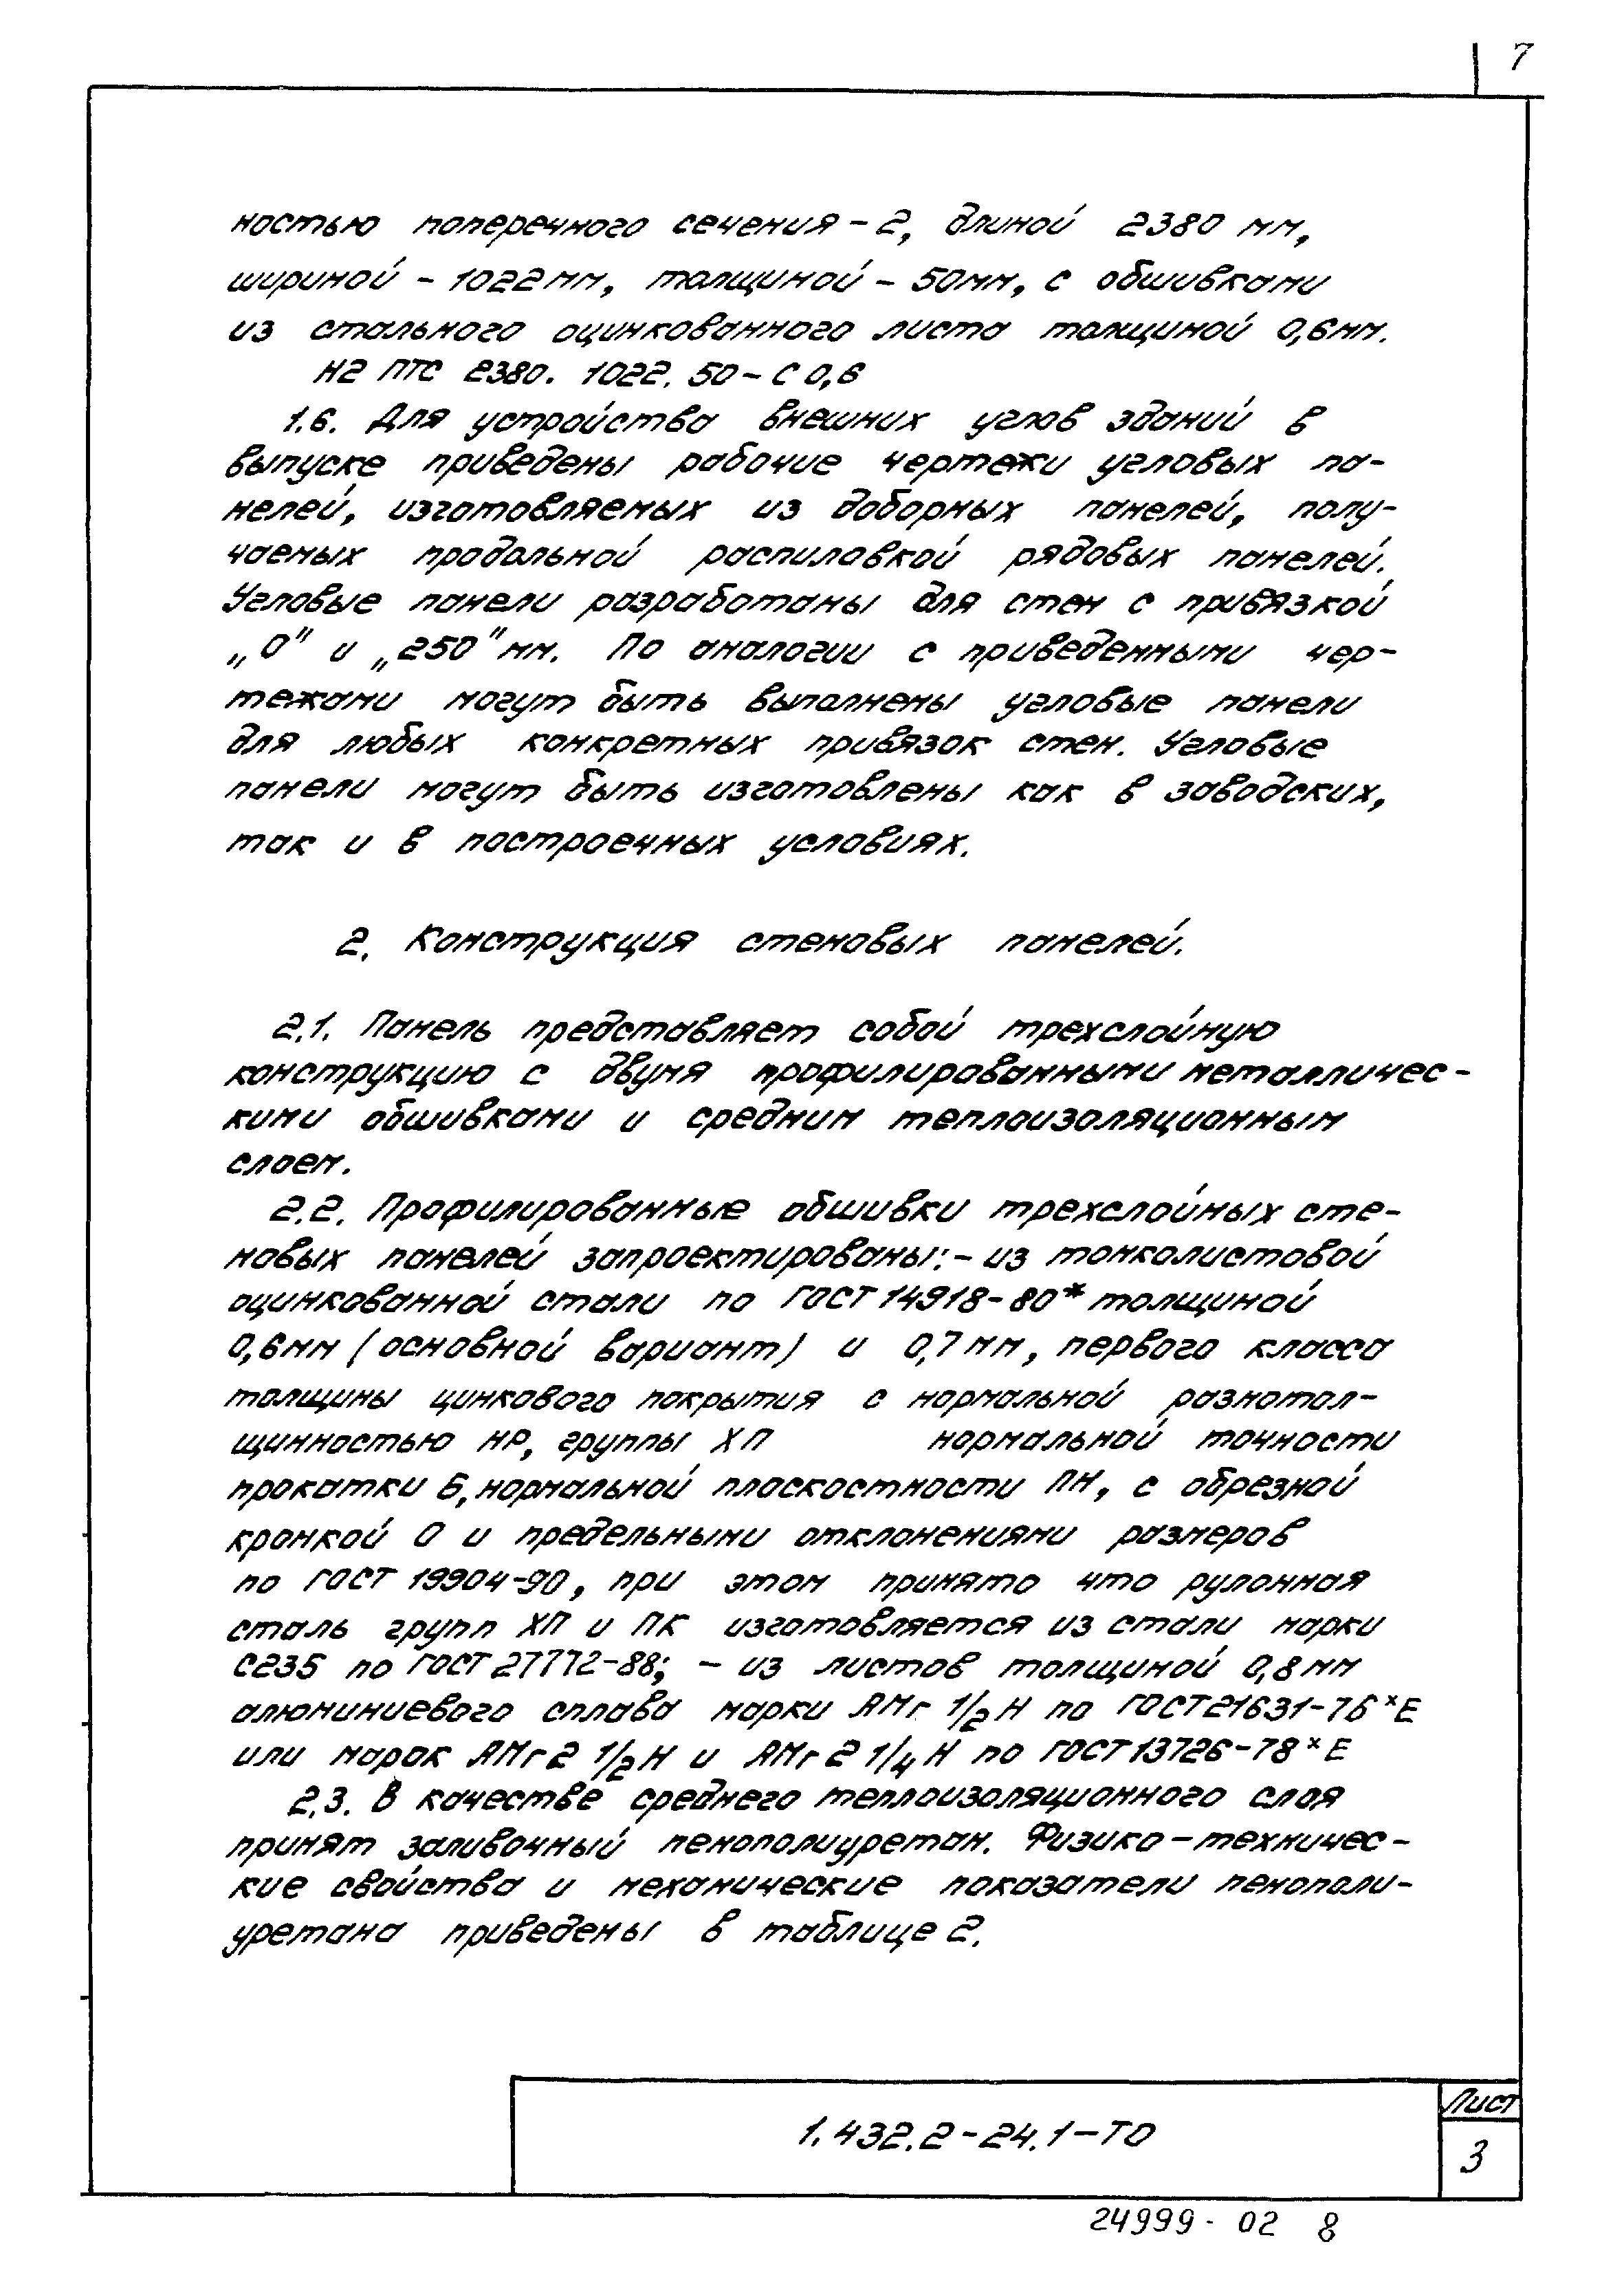 7
ностью поперечного сечения - 2, длиной 2380 мм,
шириной - 1022 мм, толщиной - 50мм, с обшивками
из стального оцинкованного листа толщиной 0,6мм.
Н2 ПТС 2380. 1022. 50 - С 0,6
1.6. Для устройства внешних углов зданий в
выпуске приведены рабочие чертежи угловых па-
нелей, изготовляемых из доборных панелей, полу-
чаемых продольной распиловкой рядовых панелей.
Угловые панели разработаны для стен с привязкой
„0" и „250" мм. По аналогии с приведенными чер-
тежами могут быть выполнены угловые панели
для любых конкретных привязок стен. Угловые
панели могут быть изготовлены как в заводских,
так и в построечных условиях.
2. Конструкция стеновых панелей.
2.1. Панель представляет собой трехслойную
конструкцию с двумя профилированными металличес-
кими обшивками и средним теплоизоляционным
слоем.
2.2. Профилированные обшивки трехслойных сте-
новых панелей запроектированы: - из тонколистовой
оцинкованной стали по ГОСТ 14918-80* толщиной
0,6мм (основной вариант) и 0,7мм, первого класса
толщины цинкового покрытия с нормальной разнотол-
щинностью НР, группы ХП нормальной точности
прокатки Б, нормальной плоскостности ПН, с обрезной
кромкой О и предельными отклонениями размеров
по ГОСТ 19904-90, при этом принято что рулонная
сталь групп ХП и ПК изготовляется из стали марки
С235 по ГОСТ 27772-88; - из листов толщиной 0,8мм
алюминиевого сплава марки АМг 1/2Н по ГОСТ 21631-76*Е
или марок АМг2 1/2Н и АМг2 1/4Н по ГОСТ 13726-78*Е
2.3. В качестве среднего теплоизоляционного слоя
принят заливочный пенополиуретан. Физико-техничес-
кие свойства и механические показатели пенополи-
уретана приведены в таблице 2.
1.432.2-24.1-ТО
Лист
3
24999-02 8